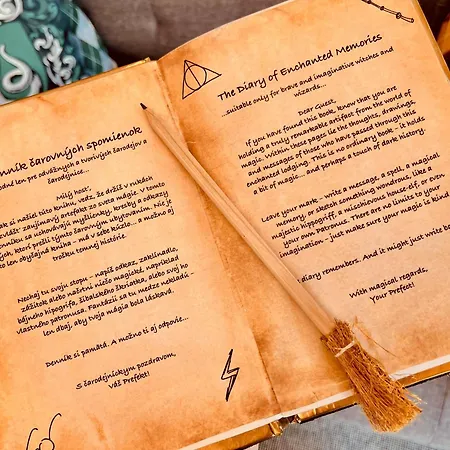 Denník čarovných spomienok
pre odvážnych a tvorivých čarodejov a
čarodejnice...
Milý hosť,
ak si našiel túto knihu, vedz, že držíš v rukách
zaujímavý artefakt zo sveta mágie. V tomto
denníku sa uchovávajú myšlienky, kresby a odkazy
ktorí prešli týmto čarovným ubytovaním. Nie je
len obyčajná kniha – má v sebe kúzlo... a možno aj
trošku temnej histórie.
Nechaj tu svoju stopu – napíš odkaz, zaklínadlo,
zážitok alebo načrtni niečo magické, napríklad
bájneho hipogrifa, šibalského škriatka, alebo svojho
vlastného patronusa. Fantázii sa tu medze nekladú –
len dbaj, aby tvoja mágia bola láskavá.
Denník si pamätá. A možno ti aj odpovie...
S čarodejníckym pozdravom,
Váš Prefekt!
The Diary of Enchanted Memories
...suitable only for brave and imaginative witches and
wizards...
Dear Guest,
If you have found this book, know that you are
holding a truly remarkable artifact from the world of
magic. Within these pages lie the thoughts, drawings,
and messages of those who have passed through this
enchanted lodging. This is no ordinary book – it holds
a bit of magic... and perhaps a touch of dark history.
Leave your mark – write a message, a spell, a magical
memory, or sketch something wondrous, like a
majestic hippogriff, a mischievous house-elf, or even
your own Patronus. There are no limits to your
imagination – just make sure your magic is kind
diary remembers. And it might just write
With magical regards,
Your Prefect!